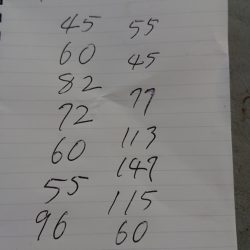 45 55
60 45
82 77
72 113
60 147
55 115
96 60